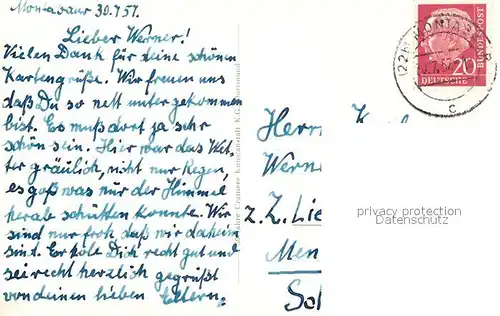 Montabaur 30.7.57.
Lieber Werner!
Vielen Dank für deine schönen
Kartengrüße! Wir freuen uns
daß Du so nett untergekommen
bist. Es muß dort ja sehr
schön sein. Hier war das Wet-
ter gräulich, nicht nur Regen,
es goß was nur der Himmel
herab schütten konnte. Wir
sind nur froh, daß wir daheim
sind. Erhole Dich recht gut und
sei recht herzlich gegrüßt
von deinen lieben Eltern.
DEUTSCHE BUNDESPOST
20
c
Herrn
Wern
z. Z. Lie
Men
Sol
privacy protection
Datenschutz